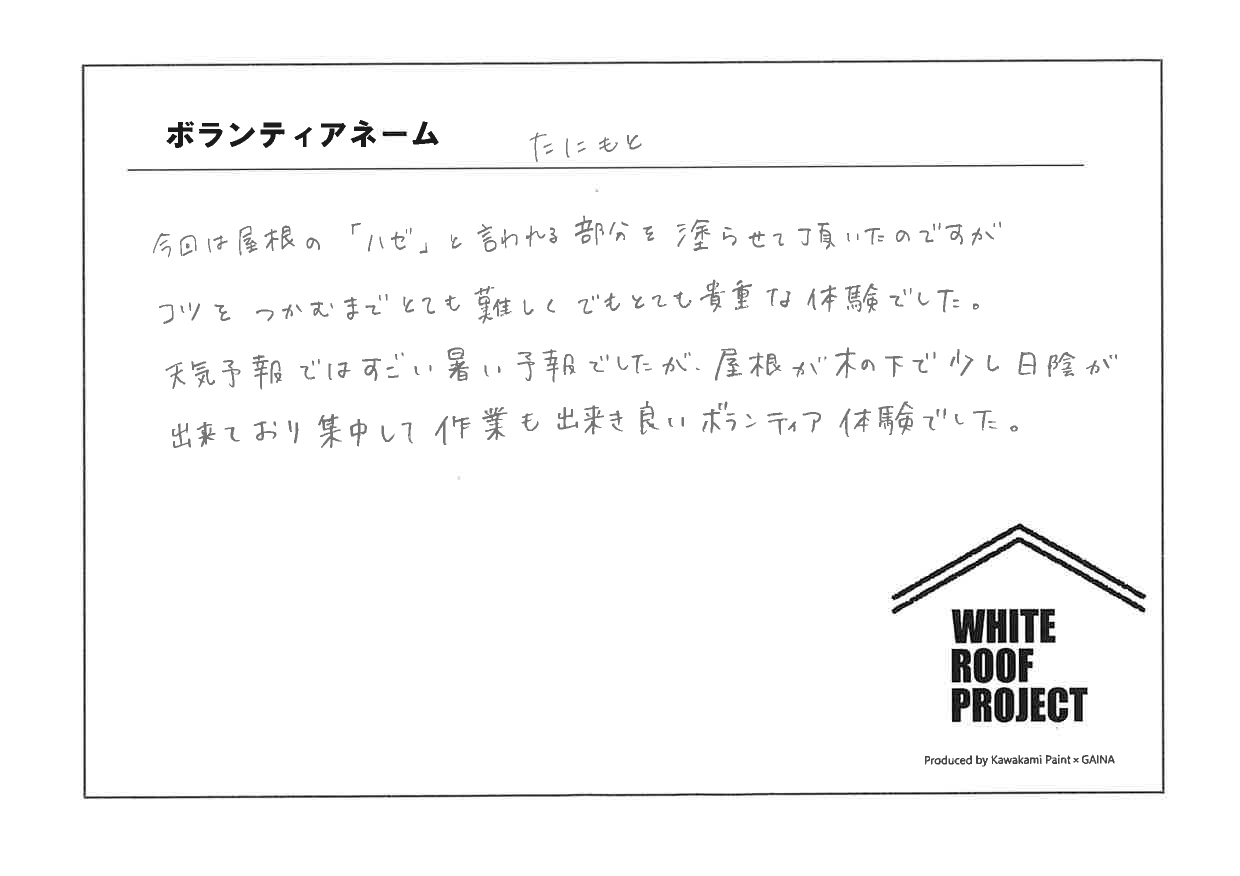 ボランティアネーム たにもと
今回は屋根の「ハゼ」と言われる部分を塗らせて頂いたのですが
コツをつかむまでとても難しくでもとても貴重な体験でした。
天気予報ではすごい暑い予報でしたが、屋根が木の下で少し日陰が
出来ており集中して作業も出来き良いボランティア体験でした。
WHITE
ROOF
PROJECT
Produced by Kawakami Paint × GAINA